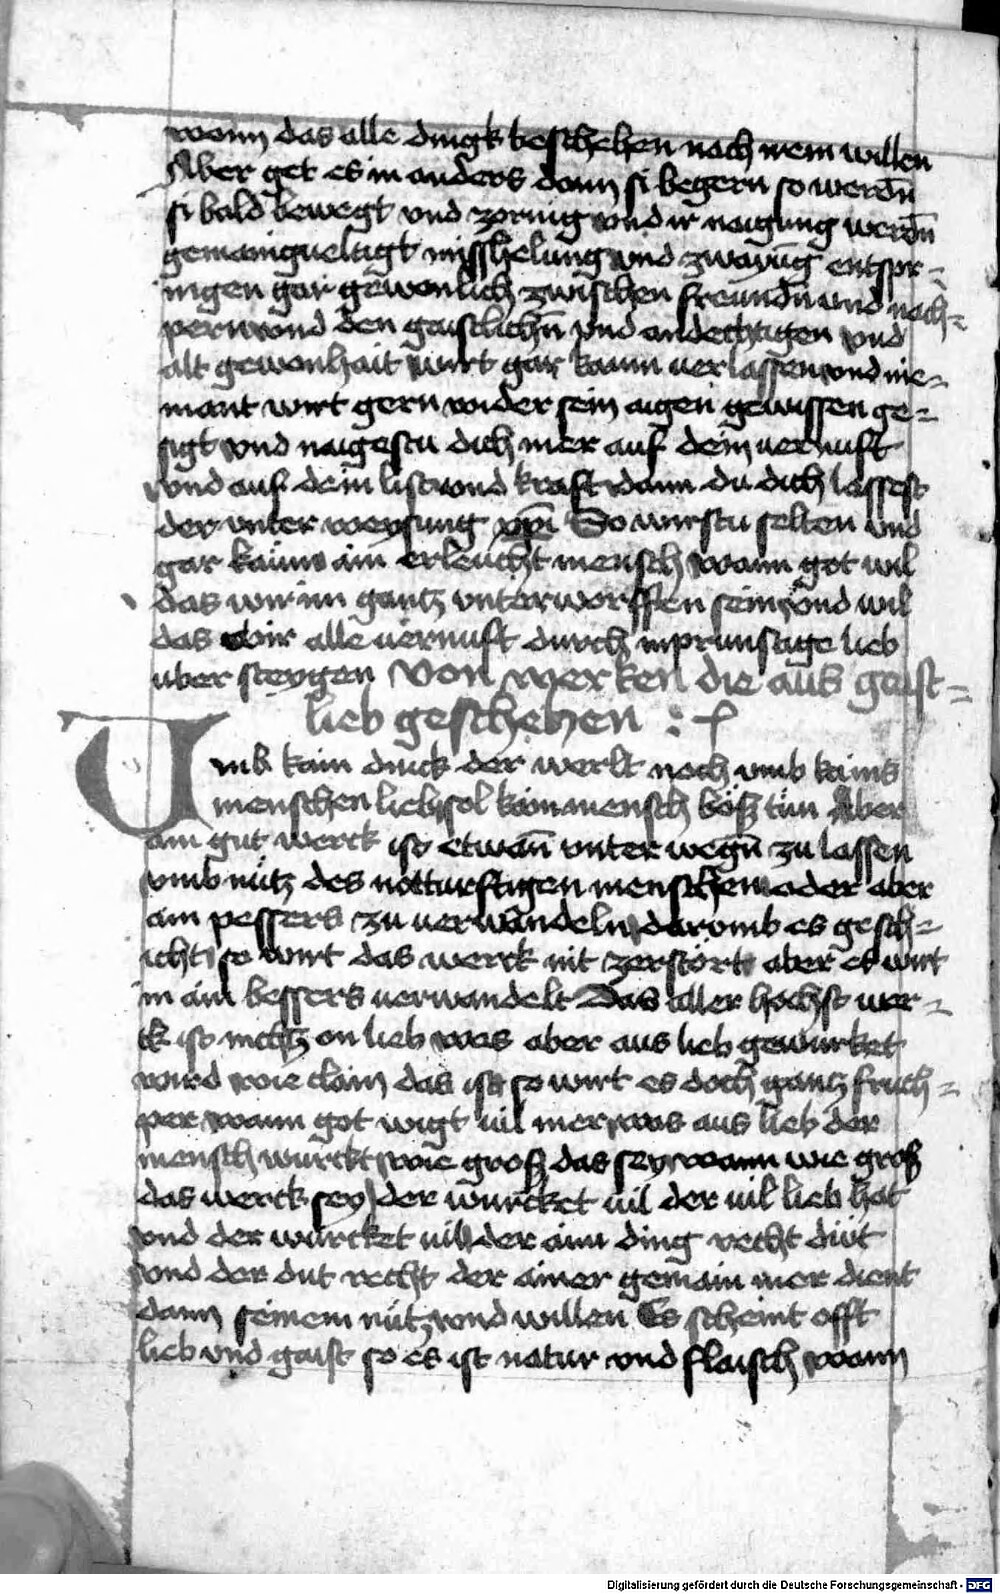 wann das alle dingk beschehen nach irem willen
Aber get es in anders dann si begern so werdn̄
si bald bewegt vnd zornig vnd ir naigung werdn̄
gemanigueltigt misshelung vnd zwayūg entspr=
ingen gar gewonlich zwischen freundn̄ vnd nach=
pern vnd den gaistlichn̄ vnd andechtigen vnd
alt gewonhait wirt gar kaum uerlassen vnd nie=
mant wirt gern wider sein aigen gewissen ge=
sigt vnd naigestu dich mer auf dein uernuft
vnd auf dein list vnd kraft dann du dich lassest
der vnter weysung xp̄i So wirstu selten vnd
gar kaum ain erleucht mensch wann got wil
das wir im gantz vnterworffen sein vnd wil
das wir alle uernuft durch inprunstige lieb
uber steygen Von werken die aus gaist=
lieb geschehen :
Vmb kain dinck der werlt noch vmb kains
menschen lieb sol kain mensch böss tün Aber
ain gut werck ist etwan̄ vnter wegn̄ zu lassen
vmb nütz des notturftigen menschen oder aber
ain pessers zu uerwandeln darvmb es gesch=
icht so wirt das werck nit zerstört aber es wirt
in ain bessers uerwandelt Das aller höchst wer=
ck ist nichtz on lieb was aber aus lieb gewürket
wird wie clain das ist so wirt es doch gantz fruch=
per wann got wigt uil mer was aus lieb der
mensch würckt wie gross das sey wann wie gross
das werck sey der würcket uil der uil lieb hat
vnd der würcket uil der ain ding recht düt
vnd der dut recht der ainer gemain mer dient
dann seinem nütz vnd willen Es scheint offt
lieb vnd gaist so es ist natur vnd flaisch wann
Digitalisierung gefördert durch die Deutsche Forschungsgemeinschaft - DFG